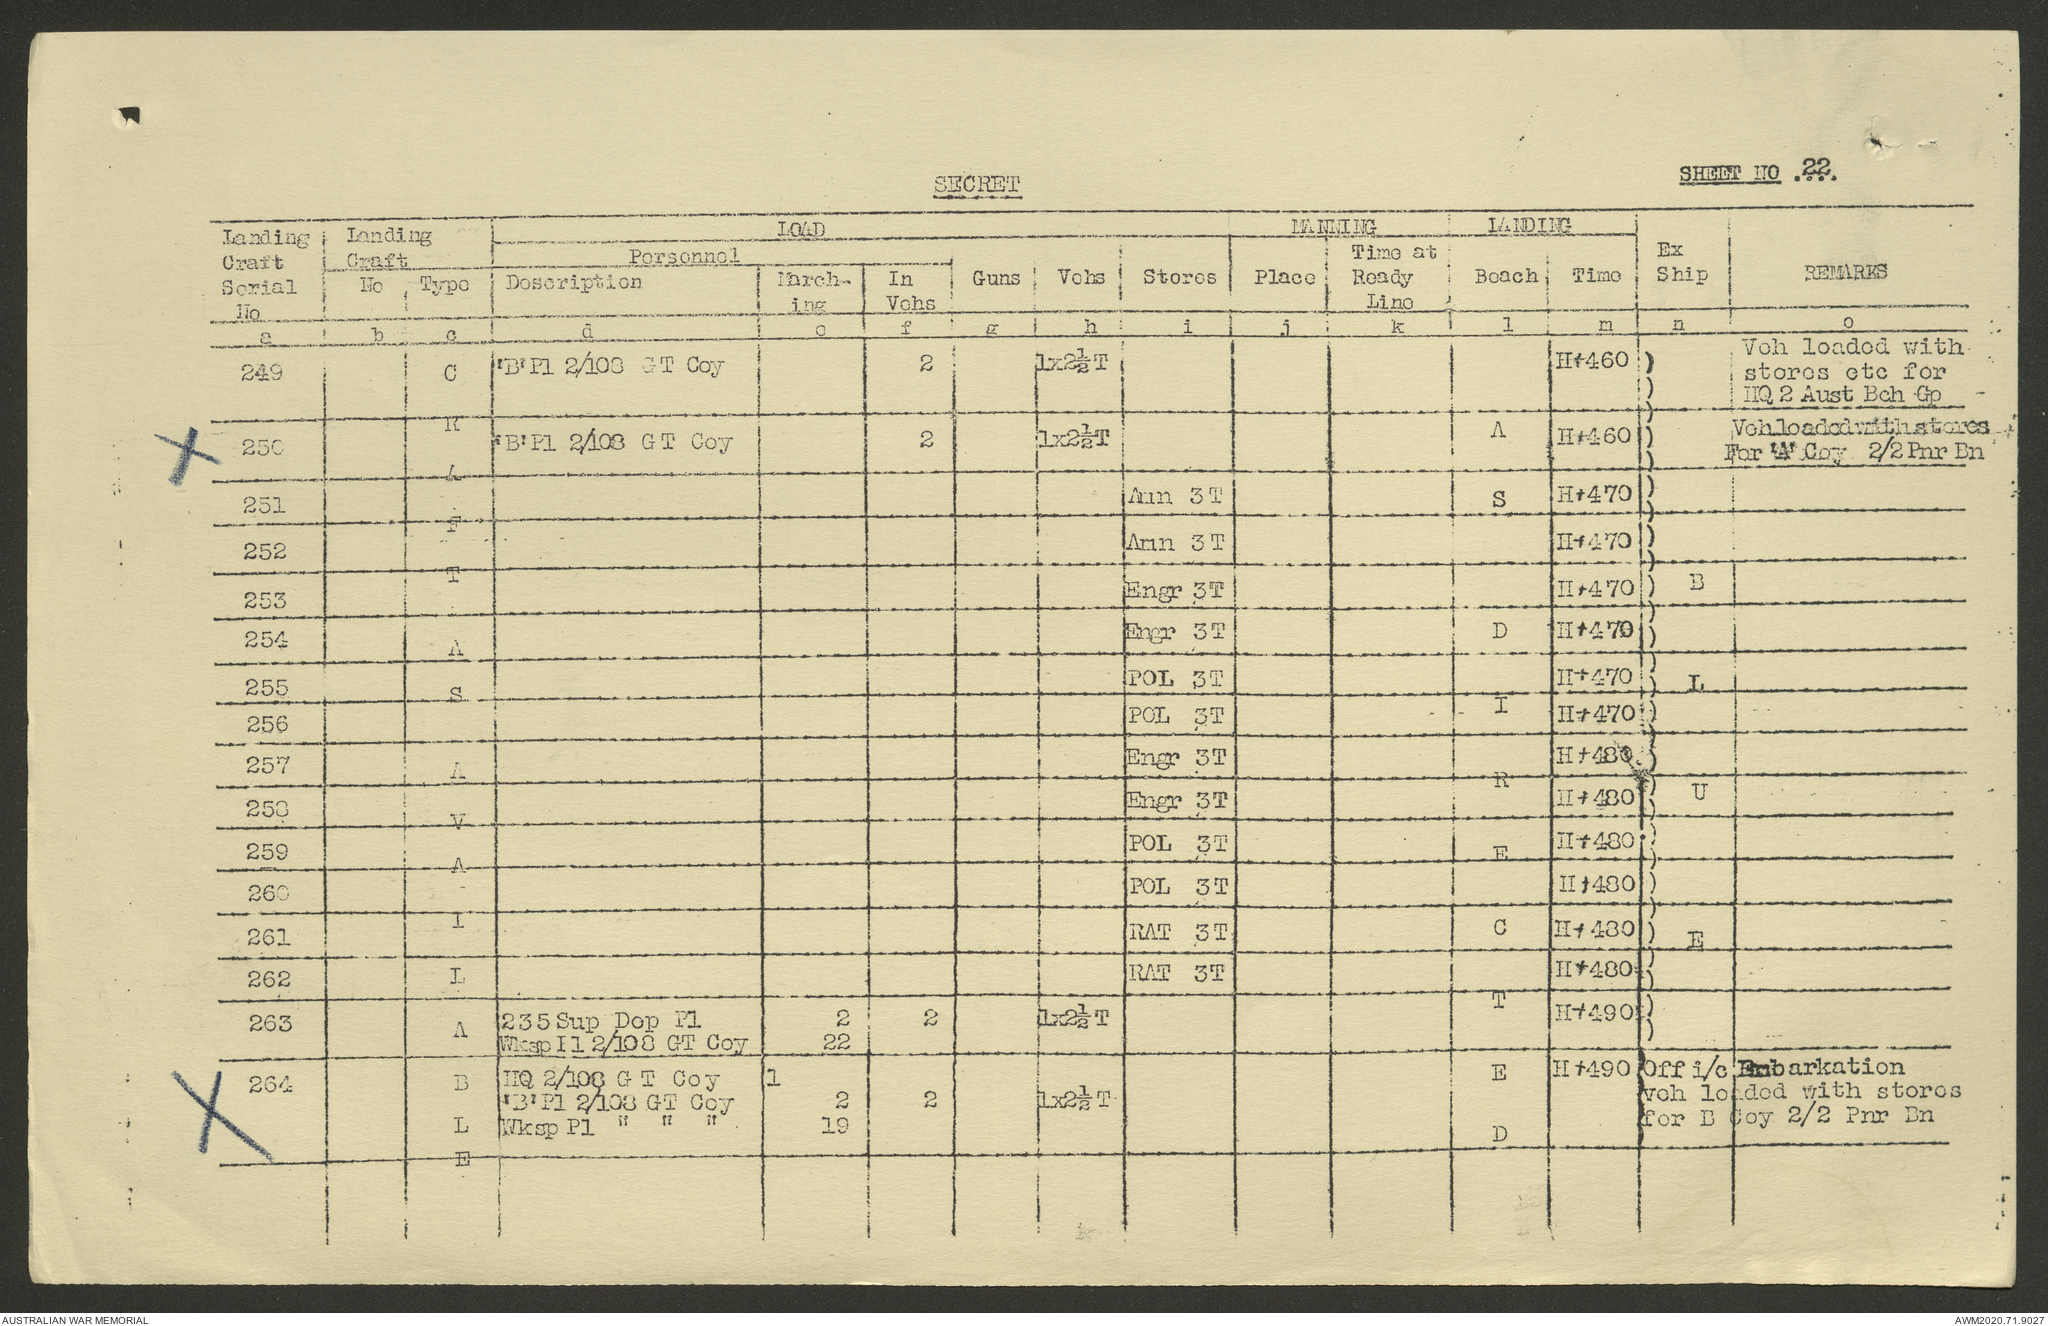 SECRET
SHEET NO 22
Landing Craft Serial No
Landing Craft
No
Type
LOAD
Personnel
Description
March-ing
In Vehs
Guns
Vehs
Stores
MANNING
Place
Time at Ready Line
LANDING
Beach
Time
Ex Ship
REMARKS
a b c d e f g h i j k l m n o
249 'B' Pl 2/108 GT Coy 2 1x2½T H+460 ) Veh loaded with
stores etc for
HQ 2 Aust Bch Gp
250 'B' Pl 2/108 GT Coy 2 1x2½T H+460 ) Veh loaded with stores
For 'A' Coy 2/2 Pnr Bn
251 Amn 3T H+470 )
252 Amn 3T H+470 )
253 Engr 3T H+470 )
254 Engr 3T H+470 )
255 POL 3T H+470 )
256 POL 3T H+470 )
257 Engr 3T H+480 )
258 Engr 3T H+480 )
259 POL 3T H+480 )
260 POL 3T H+480 )
261 RAT 3T H+480 )
262 RAT 3T H+480 )
263 235 Sup Dep Pl 2 2 1x2½T H+490 )
Wksp Pl 2/108 GT Coy 22
264 HQ 2/108 GT Coy 1 H+490 Off i/c Embarkation
'B' Pl 2/108 GT Coy 2 2 1x2½T veh loaded with stores
Wksp Pl " " " 19 for B Coy 2/2 Pnr Bn
C R A F T
A S
A V A I L A B L E
A S
D I R E C T E D
B L U E
AUSTRALIAN WAR MEMORIAL
AWM2020.71.9027